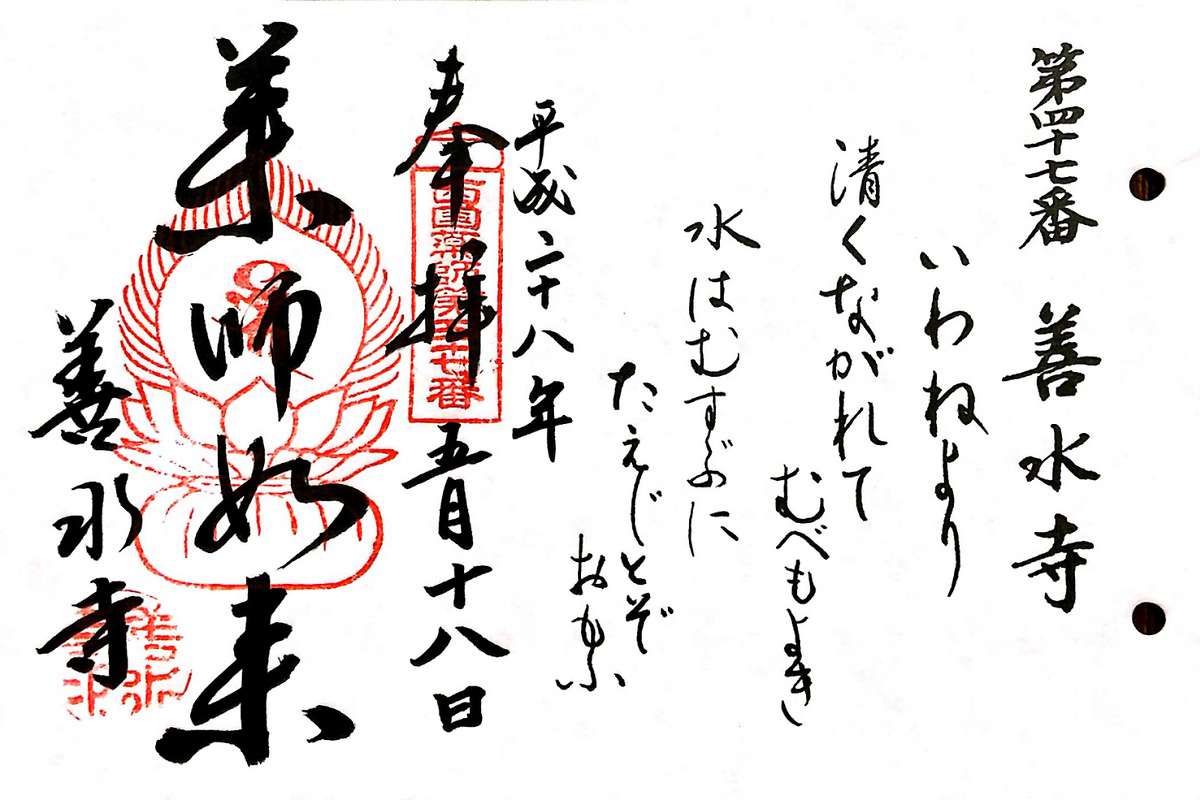 第四十七番 善水寺
いわねより
清くながれて
むべもよき
水はむすぶに
たえじとぞ
おもふ
平成二十八年
奉拝 五月十八日
西國薬師第四十七番
薬師如来
善水寺